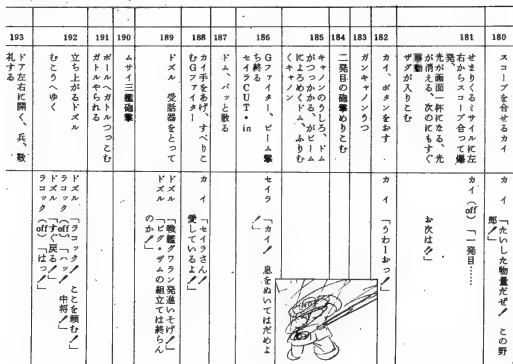 180
スコープを合せるカイ
カイ 「たいした物量だぜ！ この野
郎！」
181
せまりくるミサイルに左
右からスコープ合って爆
発。
光が面面一杯になる、光
が消える、次のにもすぐ
移動
ザクが入りこむ
カイ (off) 「一発目……
お次は!!」
182
カイ、ボタンをおす
カイ 「うわーおっ！」
183
ガンキャノンうつ
184
二発目の砲撃めりこむ
185
キャノンのうしろ、ドム
がつっかかる、がビーム
によろめくドム、ふりむ
くキャノン
186
Gファイター、ビーム撃
ち終る
セイラCUT・in
セイラ 「カイ！ 息をぬいてはだめよ
！」
187
ドム、パッと散る
188
カイ手をあげ、すべりこ
むGファイター
カイ 「セイラさん！
愛しているよ！」
189
ドズル 受話器をとって
ドズル 「戦艦グワラン発進いそげ！」
ドズル 「ビグ・ザムの組立ては終らん
のか！」
190
ムサイ三艦砲撃
191
ボールへガトルつっこむ
ガトルやられる
192
立ち上がるドズル
むこうへゆく
ドズル 「ラコック！ ここを頼む！」
ラコック (off) 「ハッ！ 中将！」
ドズル 「すぐ戻る！」
ラコック (off) 「はっ！」
193
ドア左右に開く、兵、敬
礼する